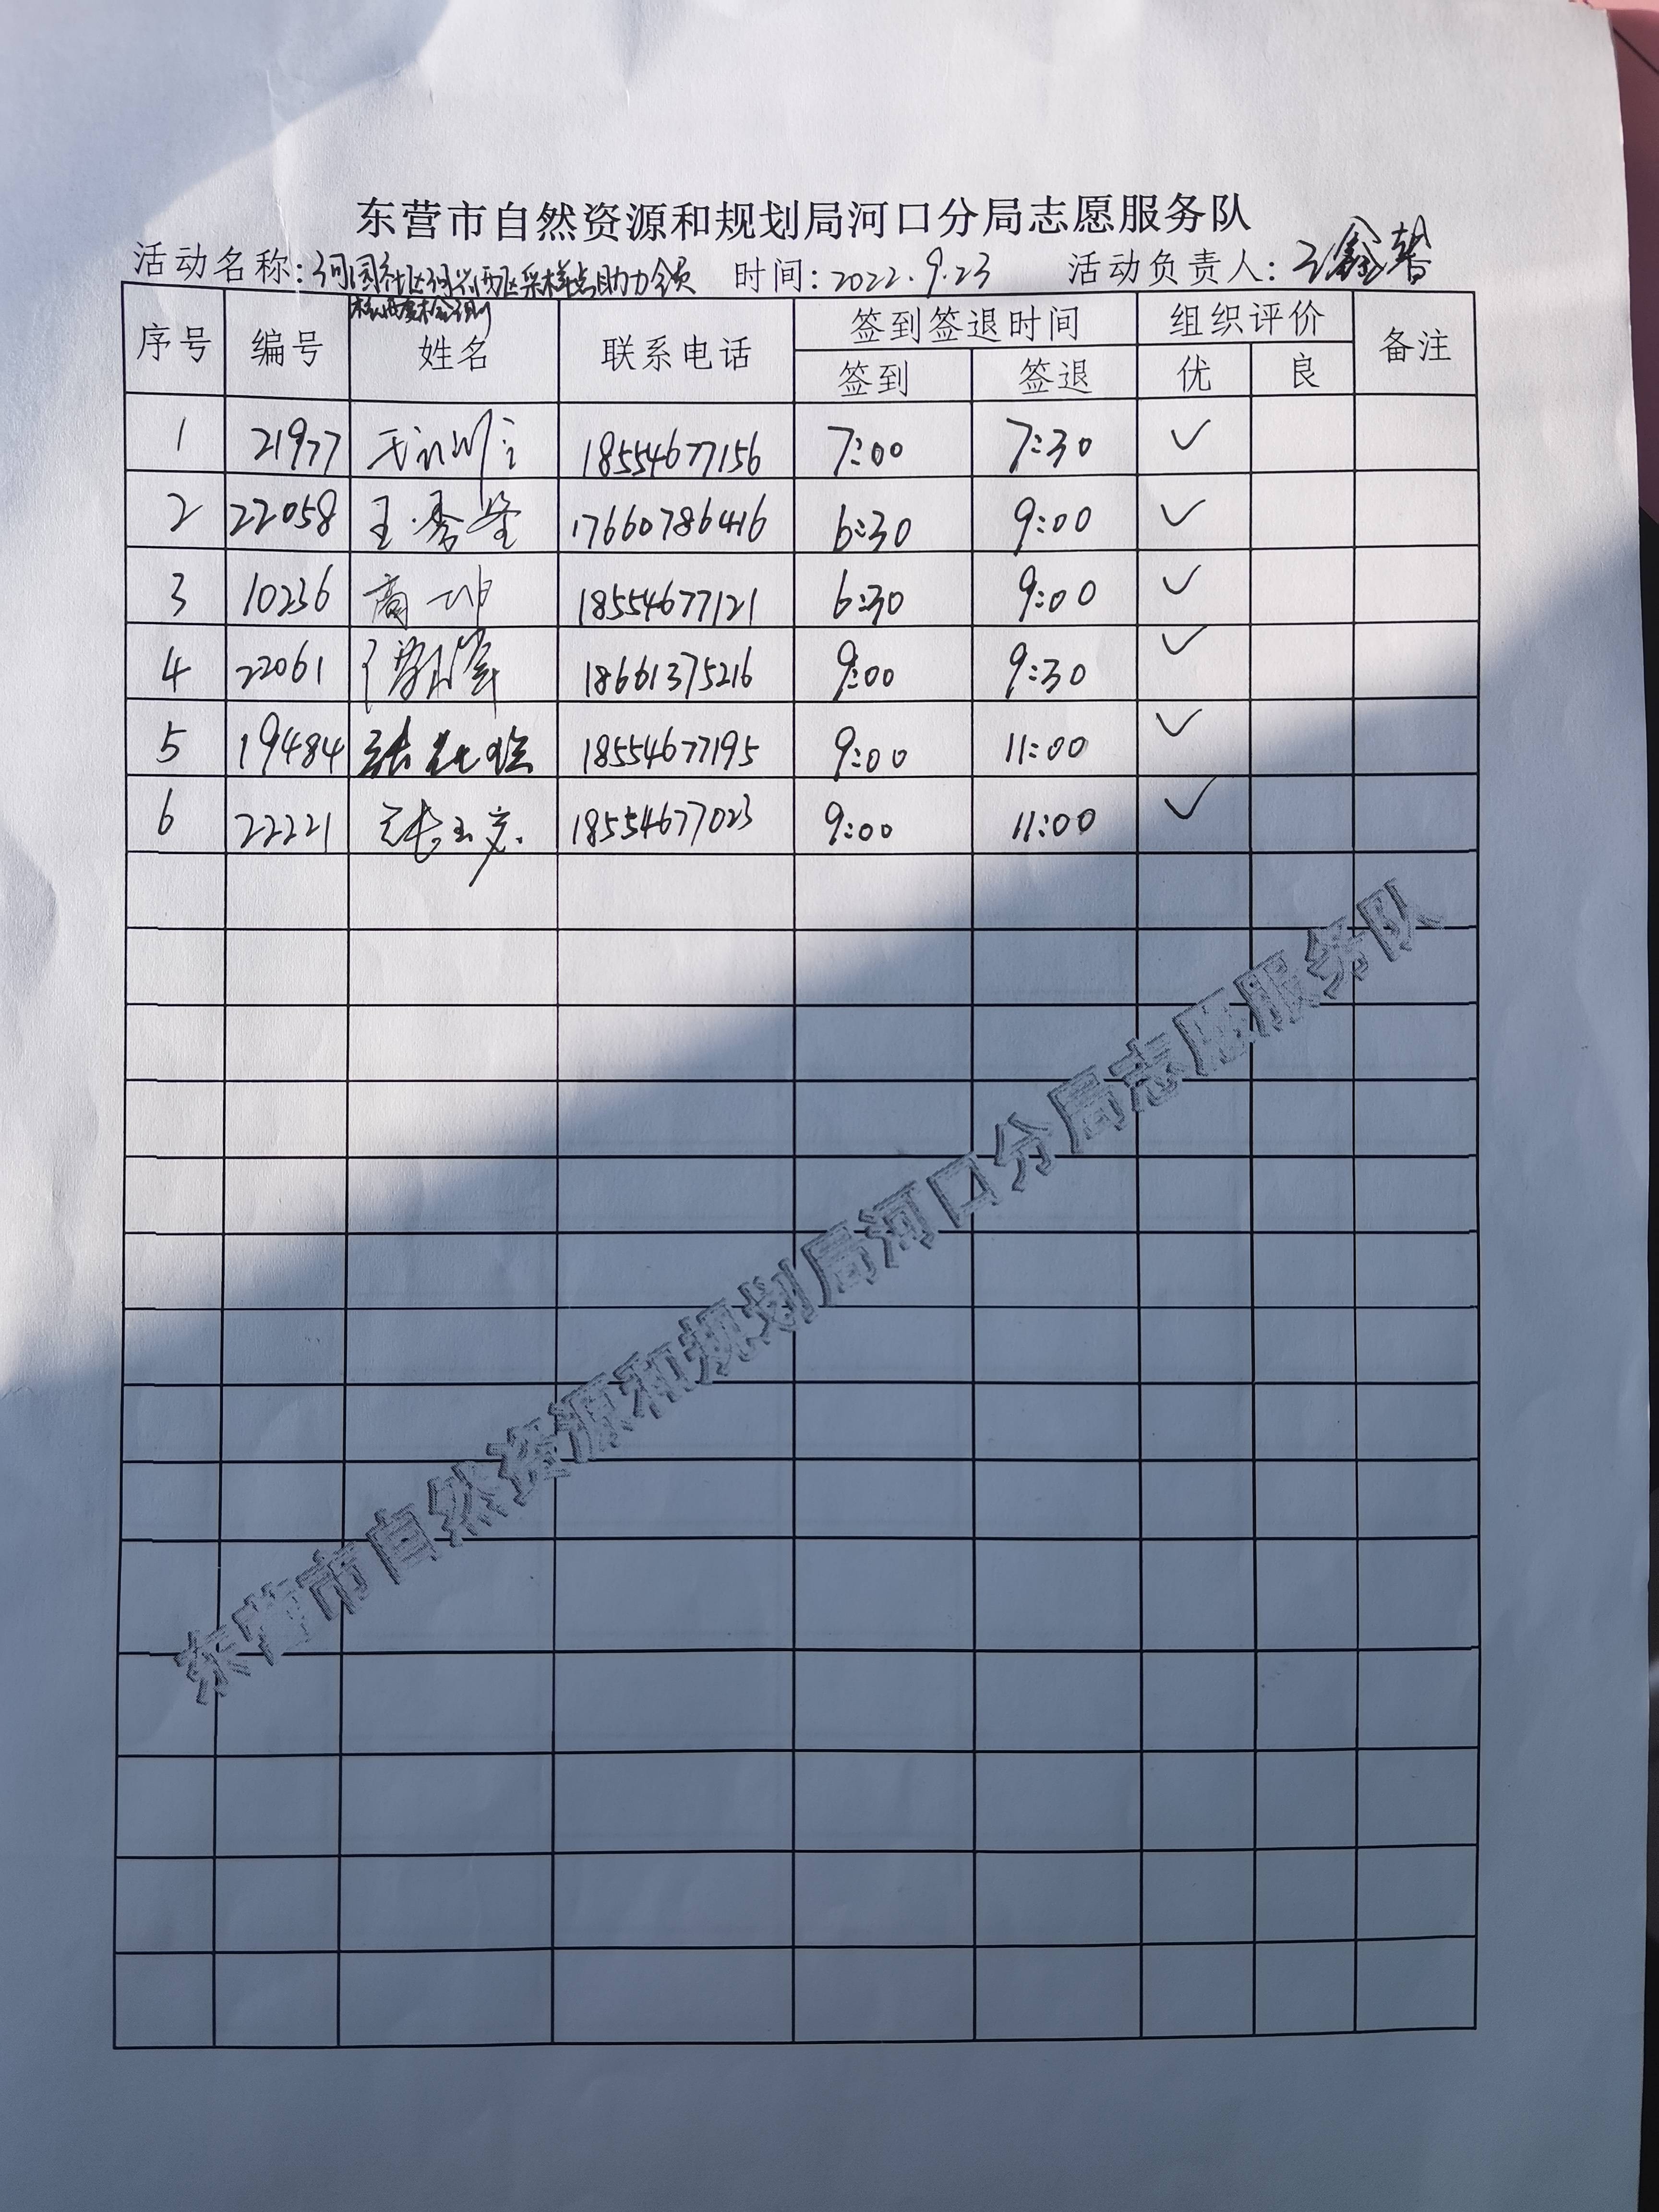 东营市自然资源和规划局河口分局志愿服务队
活动名称:河园社区河兴西区采样点助力全员 时间:2022.9.23 活动负责人:
核酸检测
序号 编号 姓名 联系电话 签到签退时间 组织评价 备注
签到 签退 优 良
1 21977 18554677156 7:00 7:30 ✓
2 22058 王秀 17660786416 6:30 9:00 ✓
3 10236 商 18554677121 6:30 9:00 ✓
4 22061 18661375216 9:00 9:30 ✓
5 19484 张 18554677195 9:00 11:00 ✓
6 22221 张玉 18554677023 9:00 11:00 ✓
东营市自然资源和规划局河口分局志愿服务队